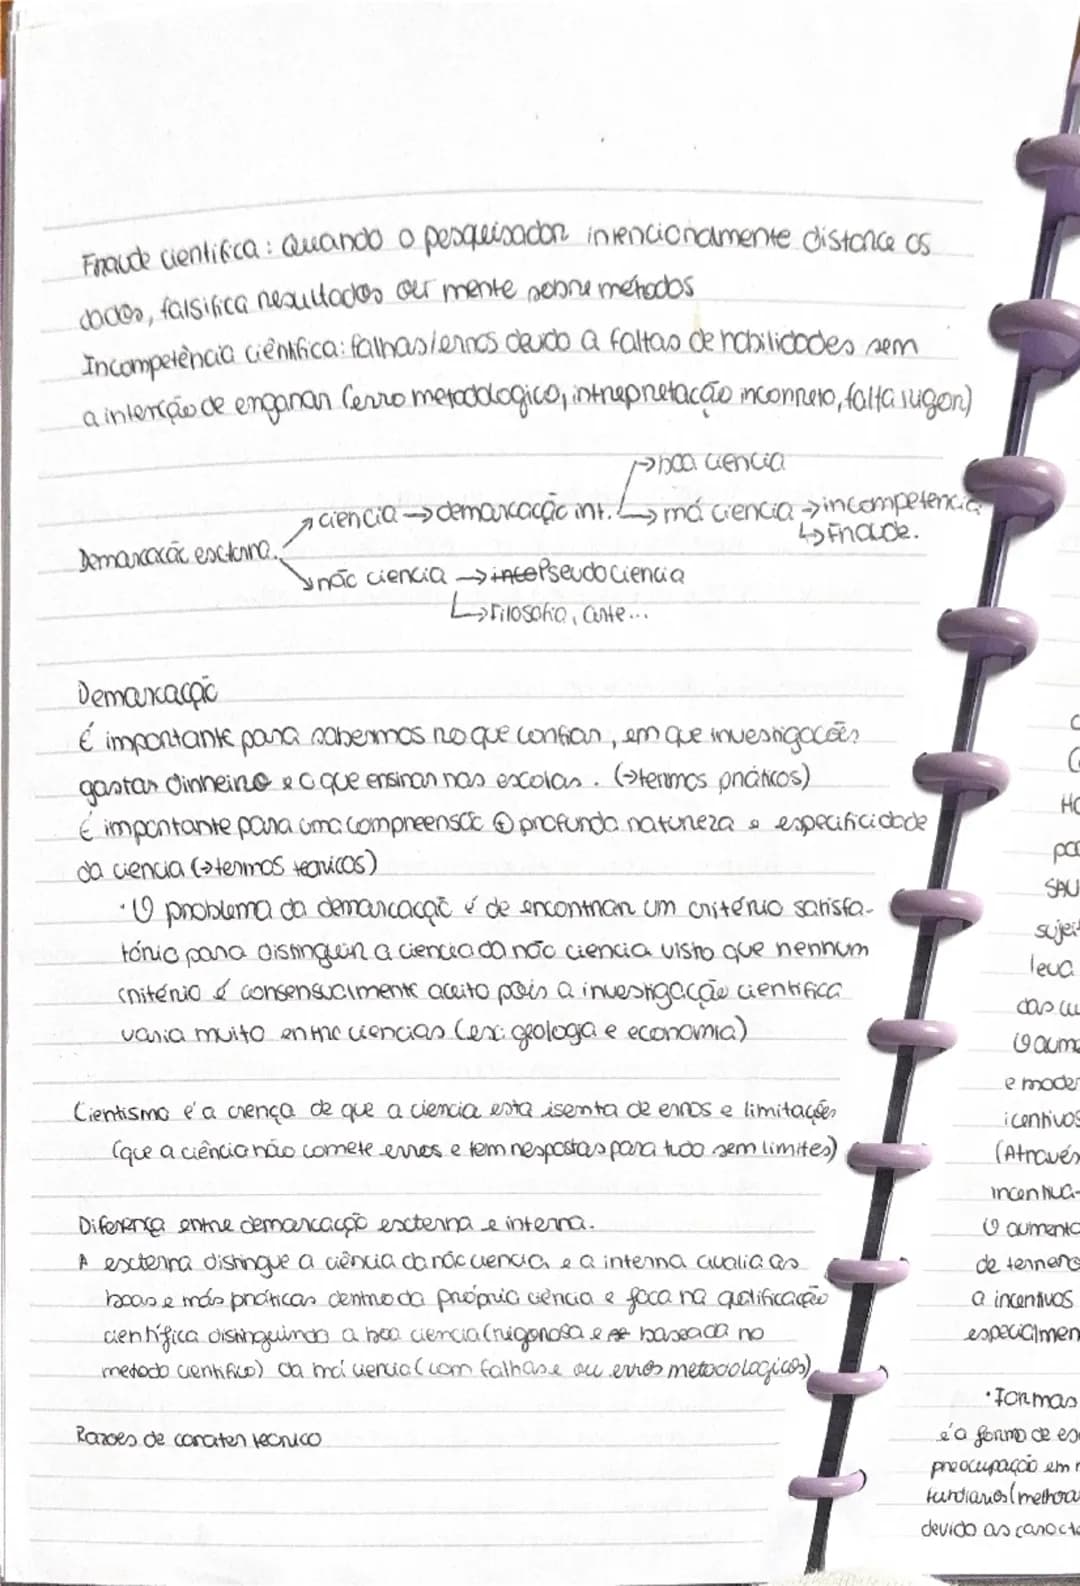 Fraude cientifica: Quando o pesquisador intencionamente distorce os
dados, falsifica resultados ou mente sobre métodos
Incompetência ciêntifica: falhas/erros devido a faltas de habilidades sem
a intenção de enganar (erro metodologico, intrepretação incorreto, falta rigor)
→boa ciencia
ciencia → demarcação int. → má ciencia → incompetencia
↳ Fraude.
Demarcação externa.
não ciencia → Pseudociencia
↳ Filosofia, arte...
Demarcação
É importante para sabermos no que confiar, em que investigações
gastar dinheiro e o que ensinar nas escolas. (→termos práticos)
É importante para uma compreensão ⊕ profunda natureza e especificidade
da ciencia (→termos teoricos)
· O problema da demarcação é de encontrar um critério satisfa-
tório para distinguir a ciencia da não ciencia visto que nenhum
critério é consensualmente aceito pois a investigação cientifica
varia muito entre ciencias (ex: geologa e economia)
Cientismo é a crença de que a ciencia esta isenta de erros e limitações
(que a ciência não comete erros e tem respostas para tudo sem limites)
Diferença entre demarcação externa e interna.
A externa distingue a ciência da não ciencia e a interna avalia as
boas e más práticas dentro da própria ciência e foca na qualificação
científica distinguindo a boa ciencia (rigorosa e baseada no
metodo cientifico) da má ciencia (com falhas e ou erros metodologicos)
Razoes de carater tecnico
Ho
par
SAU
sujeit
leva
das cu
O aume
e moder
icentivos
(Através
incentiva-
O aumento
de terreno
a incentivos
especialmen
· Formas
é a forma de es
preocupação em r
fundiarios (melhorar
devido as caracte